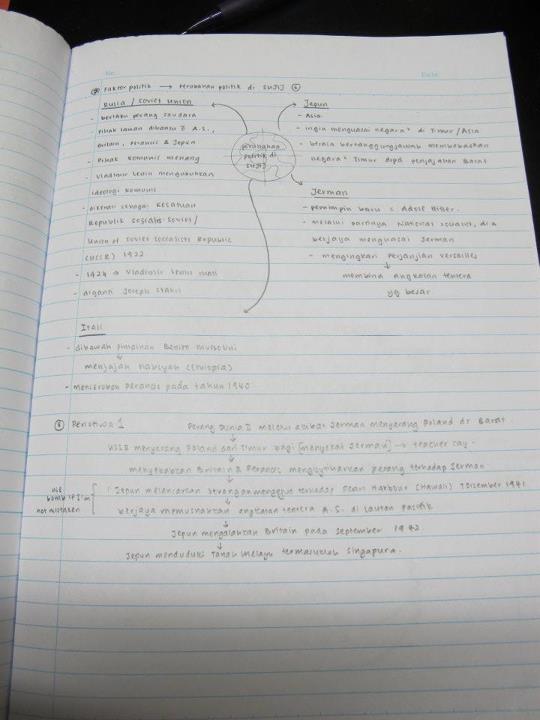 No.
Date
Faktor politik → Perubahan politik di SUJIJ
Rusia / Soviet Union
- berlaku perang saudara
- Pihak lawan dibantu A.S.,
Britain, Perancis & Jepun
- Pihak komunis menang
- Vladimir Lenin mengukuhkan
ideologi komunis
- dikenali sebagai Kesatuan
Republik Sosialis Soviet /
Union of Soviet Socialists Republic
(USSR) 1922
- 1924 → Vladimir Lenin mati
- diganti Joseph Stalin
perubahan
politik di
SUJIJ
Jepun
- Asia
- ingin menguasai negara² di Timur / Asia
- berasa bertanggungjawab membebaskan
negara² Timur drpd penjajahan Barat
Jerman
- pemimpin baru : Adolf Hitler.
- melalui partinya National Socialist, dia
berjaya menguasai Jerman
- mengingkari Perjanjian Versailles
↓
membina angkatan tentera
yg besar
Itali
- dibawah pimpinan Benito Mussolini
↓
menjajah Habsyah (Ethiopia)
- menyerbu Perancis pada tahun 1940.
Peristiwa 1
Perang Dunia II meletus akibat Jerman menyerang Poland dr Barat
↓
USSR menyerang Poland dari Timur bagi [menyekat Jerman] → teacher say.
↓
menyebabkan Britain & Perancis mengisytiharkan perang terhadap Jerman
↓
Jepun melancarkan serangan mengejut terhadap Pearl Harbour (Hawaii) 7 Disember 1941
berjaya memusnahkan angkatan tentera A.S. di Lautan Pasifik
not mistaken
↓
Jepun mengalahkan Britain pada September 1942
↓
Jepun menduduki Tanah Melayu termasuklah Singapura.